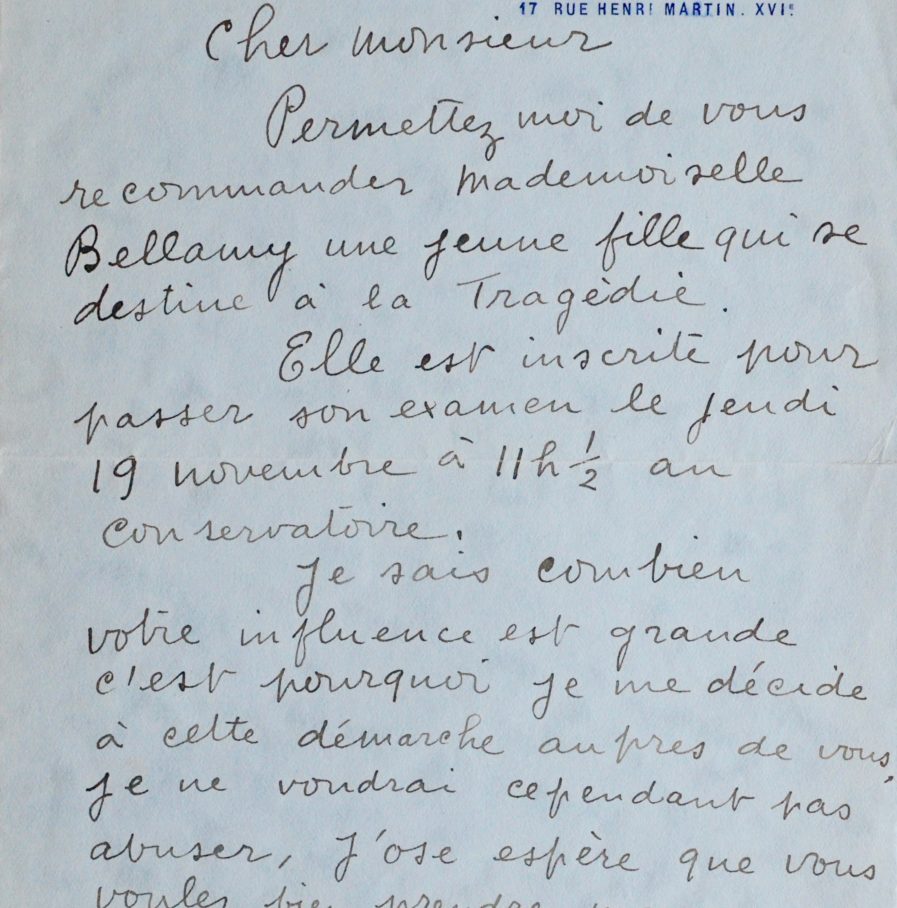 17 RUE HENRI MARTIN. XVIe
Cher Monsieur
Permettez moi de vous
recommander Mademoiselle
Bellamy une jeune fille qui se
destine à la Tragèdie.
Elle est inscrite pour
passer son examen le jeudi
19 novembre à 11h 1/2 au
Conservatoire.
Je sais combien
votre influence est grande
c'est pourquoi je me décide
à cette démarche aupres de vous,
je ne voudrai cependant pas
abuser, J'ose espère que vous
voules bien prendre